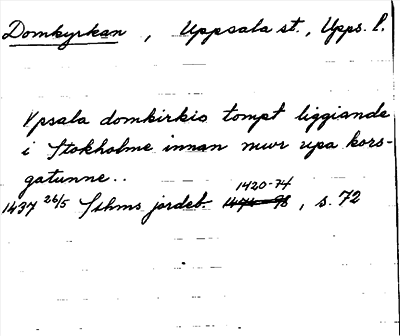 Domkyrkan, Uppsala st., Upps. l.
Vpsala domkirkio tompt liggiande
i Stokholme innan mwr vpa kors-
gatunne..
1420-74
1437 26/5 Sthms jordeb. , s. 72